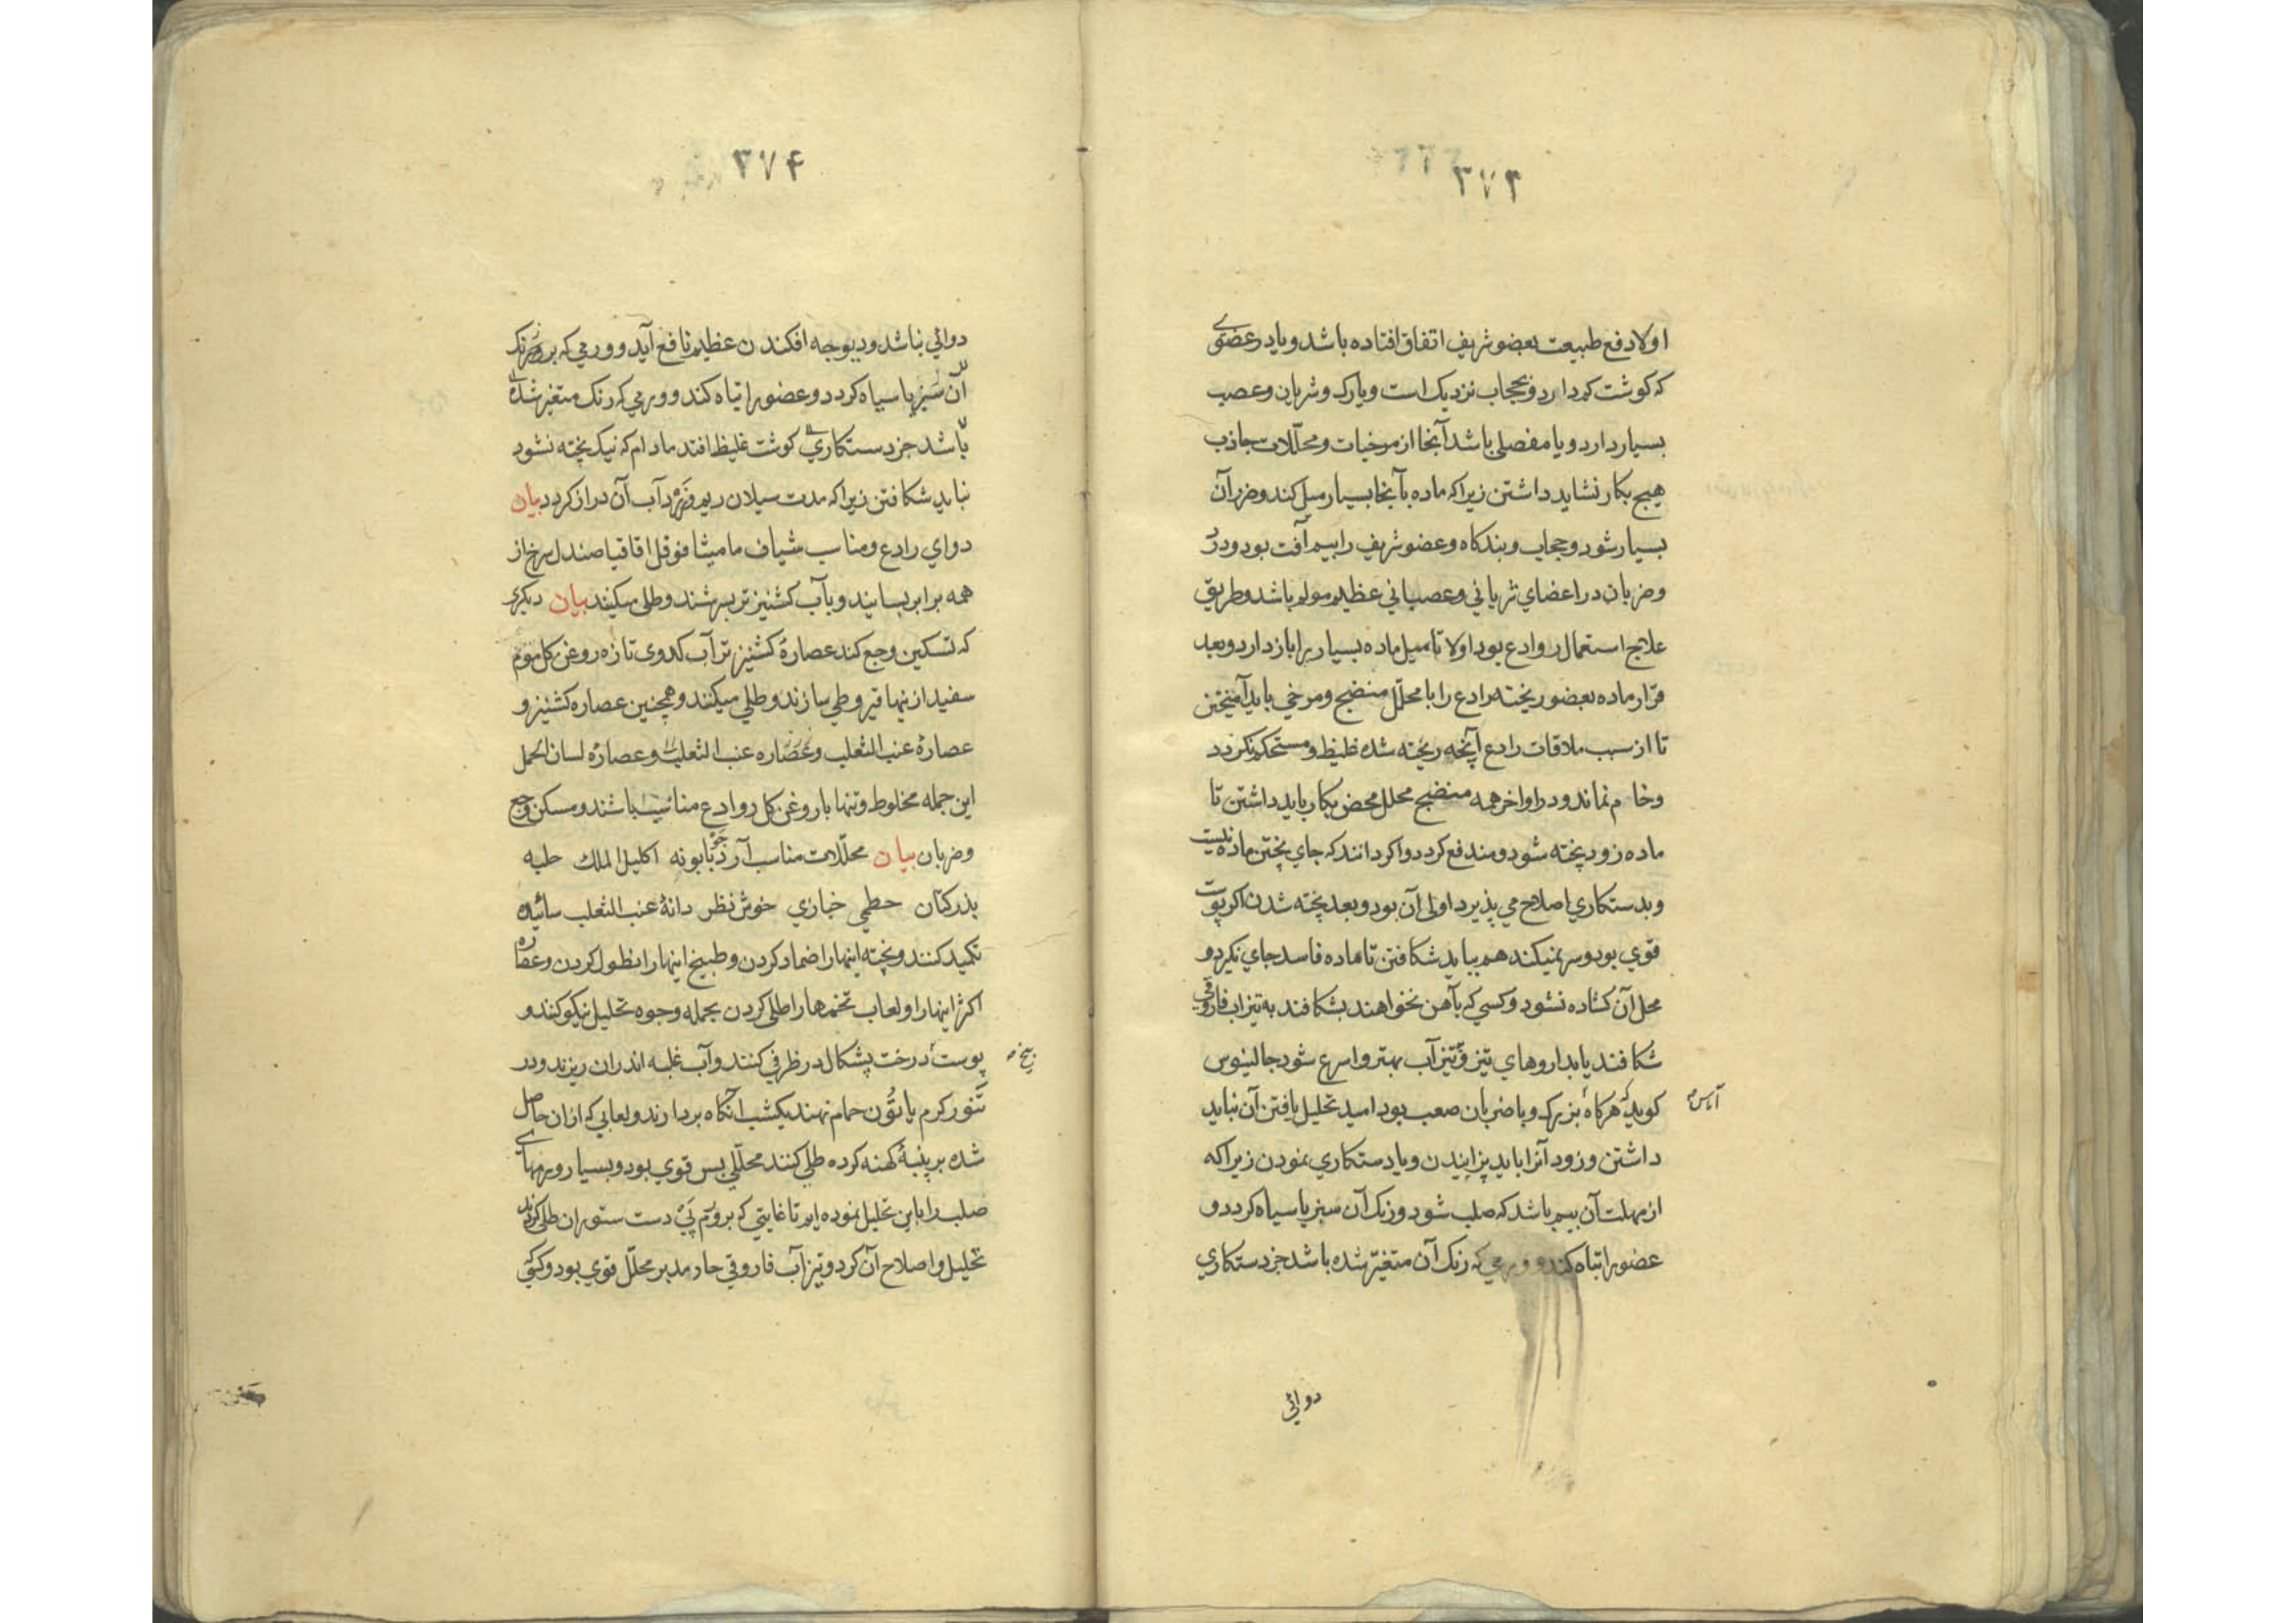 ۳۷۳
اولا دفع طبیعت بعضو شریف اتفاق افتاده باشد و یا در عضوی
که کوشت کم دارد و بحجاب نزدیک است و یا رک و شریان و عصب
بسیار دارد و یا مفصلی باشد آنجا از مرخیات و محللات جاذب
هیچ بکار نشاید داشتن زیرا که ماده بآنجا بسیار میل کند و ضرر آن
بسیار شود و حجاب و بندکاه و عضو شریف را بیم آفت بود و درد
و ضربان در اعضای شریانی و عصبانی عظیم مولم باشد و طریق
علاج استعمال روادع بود اولا تا میل ماده بسیار را باز دارد و بعد
قرار ماده بعضو ریخته رادع را با محلّل منضج و مرخی باید آمیختن
تا از سبب ملاقات رادع آنچه ریخته شده غلیظ و مستحکم نکردد
و خام نماند و در اواخر همه منضج محلل محض بکار باید داشتن تا
ماده زود پخته شود و مندفع کردد و اکر دانند که جای پختن ماده نیست
و بدستکاری اصلاح می پذیرد اولی آن بود و بعد پخته شدن اکر پوست
قوی بود و سر نمیکند هم بباید شکافتن تا ماده فاسد جای نکیرد و
محل آن کشاده نشود و کسی که بآهن نخواهند بشکافند به تیزاب فاروقی
شکافند یا بداروهای تیز و تیزآب بهتر و اسرع شود جالینوس
کوید که هرکاه بزرک و با ضربان صعب بود امید تحلیل یافتن آن نباید
آماس
داشتن و زود آنرا باید پزانیدن و یا دستکاری نمودن زیرا که
از مهلت آن بیم باشد که صلب شود و رنک آن سبز یا سیاه کردد و
عضو را تباه کند و ورمی که رنک آن متغیّر شده باشد جز دستکاری
دوائی
۳۷۴
دوائی نباشد و دیوچه افکندن عظیم نافع آید و ورمی که
آن سبز یا سیاه کردد و عضو را تباه کند و ورمی که رنک متغیر شده
باشد جز دستکاری کوشت غلیظ افتد مادام که نیک پخته نشود
نباید شکافتن زیرا که مدت سیلان ریم و زرداب آن دراز کردد بیان
دوای رادع و مناسب شیاف مامیثا فوفل اقاقیا صندل سرخ از
همه برابر بسایند و بآب کشنیز تر بسرشند و طلی میکنند بیان دیکری
که تسکین وجع کند عصارهٔ کشنیز تر آب کدوی تازه روغن کل موم
سفید از ینها قیروطی سازند و طلی میکنند و همچنین عصاره کشنیز و
عصارهٔ عنب الثعلب و عصاره عنب الثعلب و عصارهٔ لسان الحمل
این جمله مخلوط و تنها با روغن کل روادع مناسب باشند و مسکن وجع
و ضربان بیان محللات مناسب آرد جو بابونه اکلیل الملک حلبه
بذرکتان خطمی خبازی خوش نظر دانهٔ عنب الثعلب سائیده
تکمید کنند و پخته اینها را ضماد کردن و طبیخ اینها را نطول کردن و عصاره
اکثر اینها را و لعاب تخمها را طلی کردن بجمله وجوه تحلیل نیکو کنند و
پوست درخت پشکال در ظرفی کنند و آب غلبه اندران ریزند و در
بیخ
تنور کرم یا تون حمام نهند یکشب آنکاه بردارند و لعابی که ازان حاصل
شده بر پنبهٔ کهنه کرده طلی کنند محللی بس قوی بود و بسیار ورمهای
صلب را باین تحلیل نموده ایم تا غایتی که بر ورم پی دست ستوران طلی کردند
تحلیل و اصلاح آن کرد و تیزآب فاروقی حار مدبر محلل قوی بود و